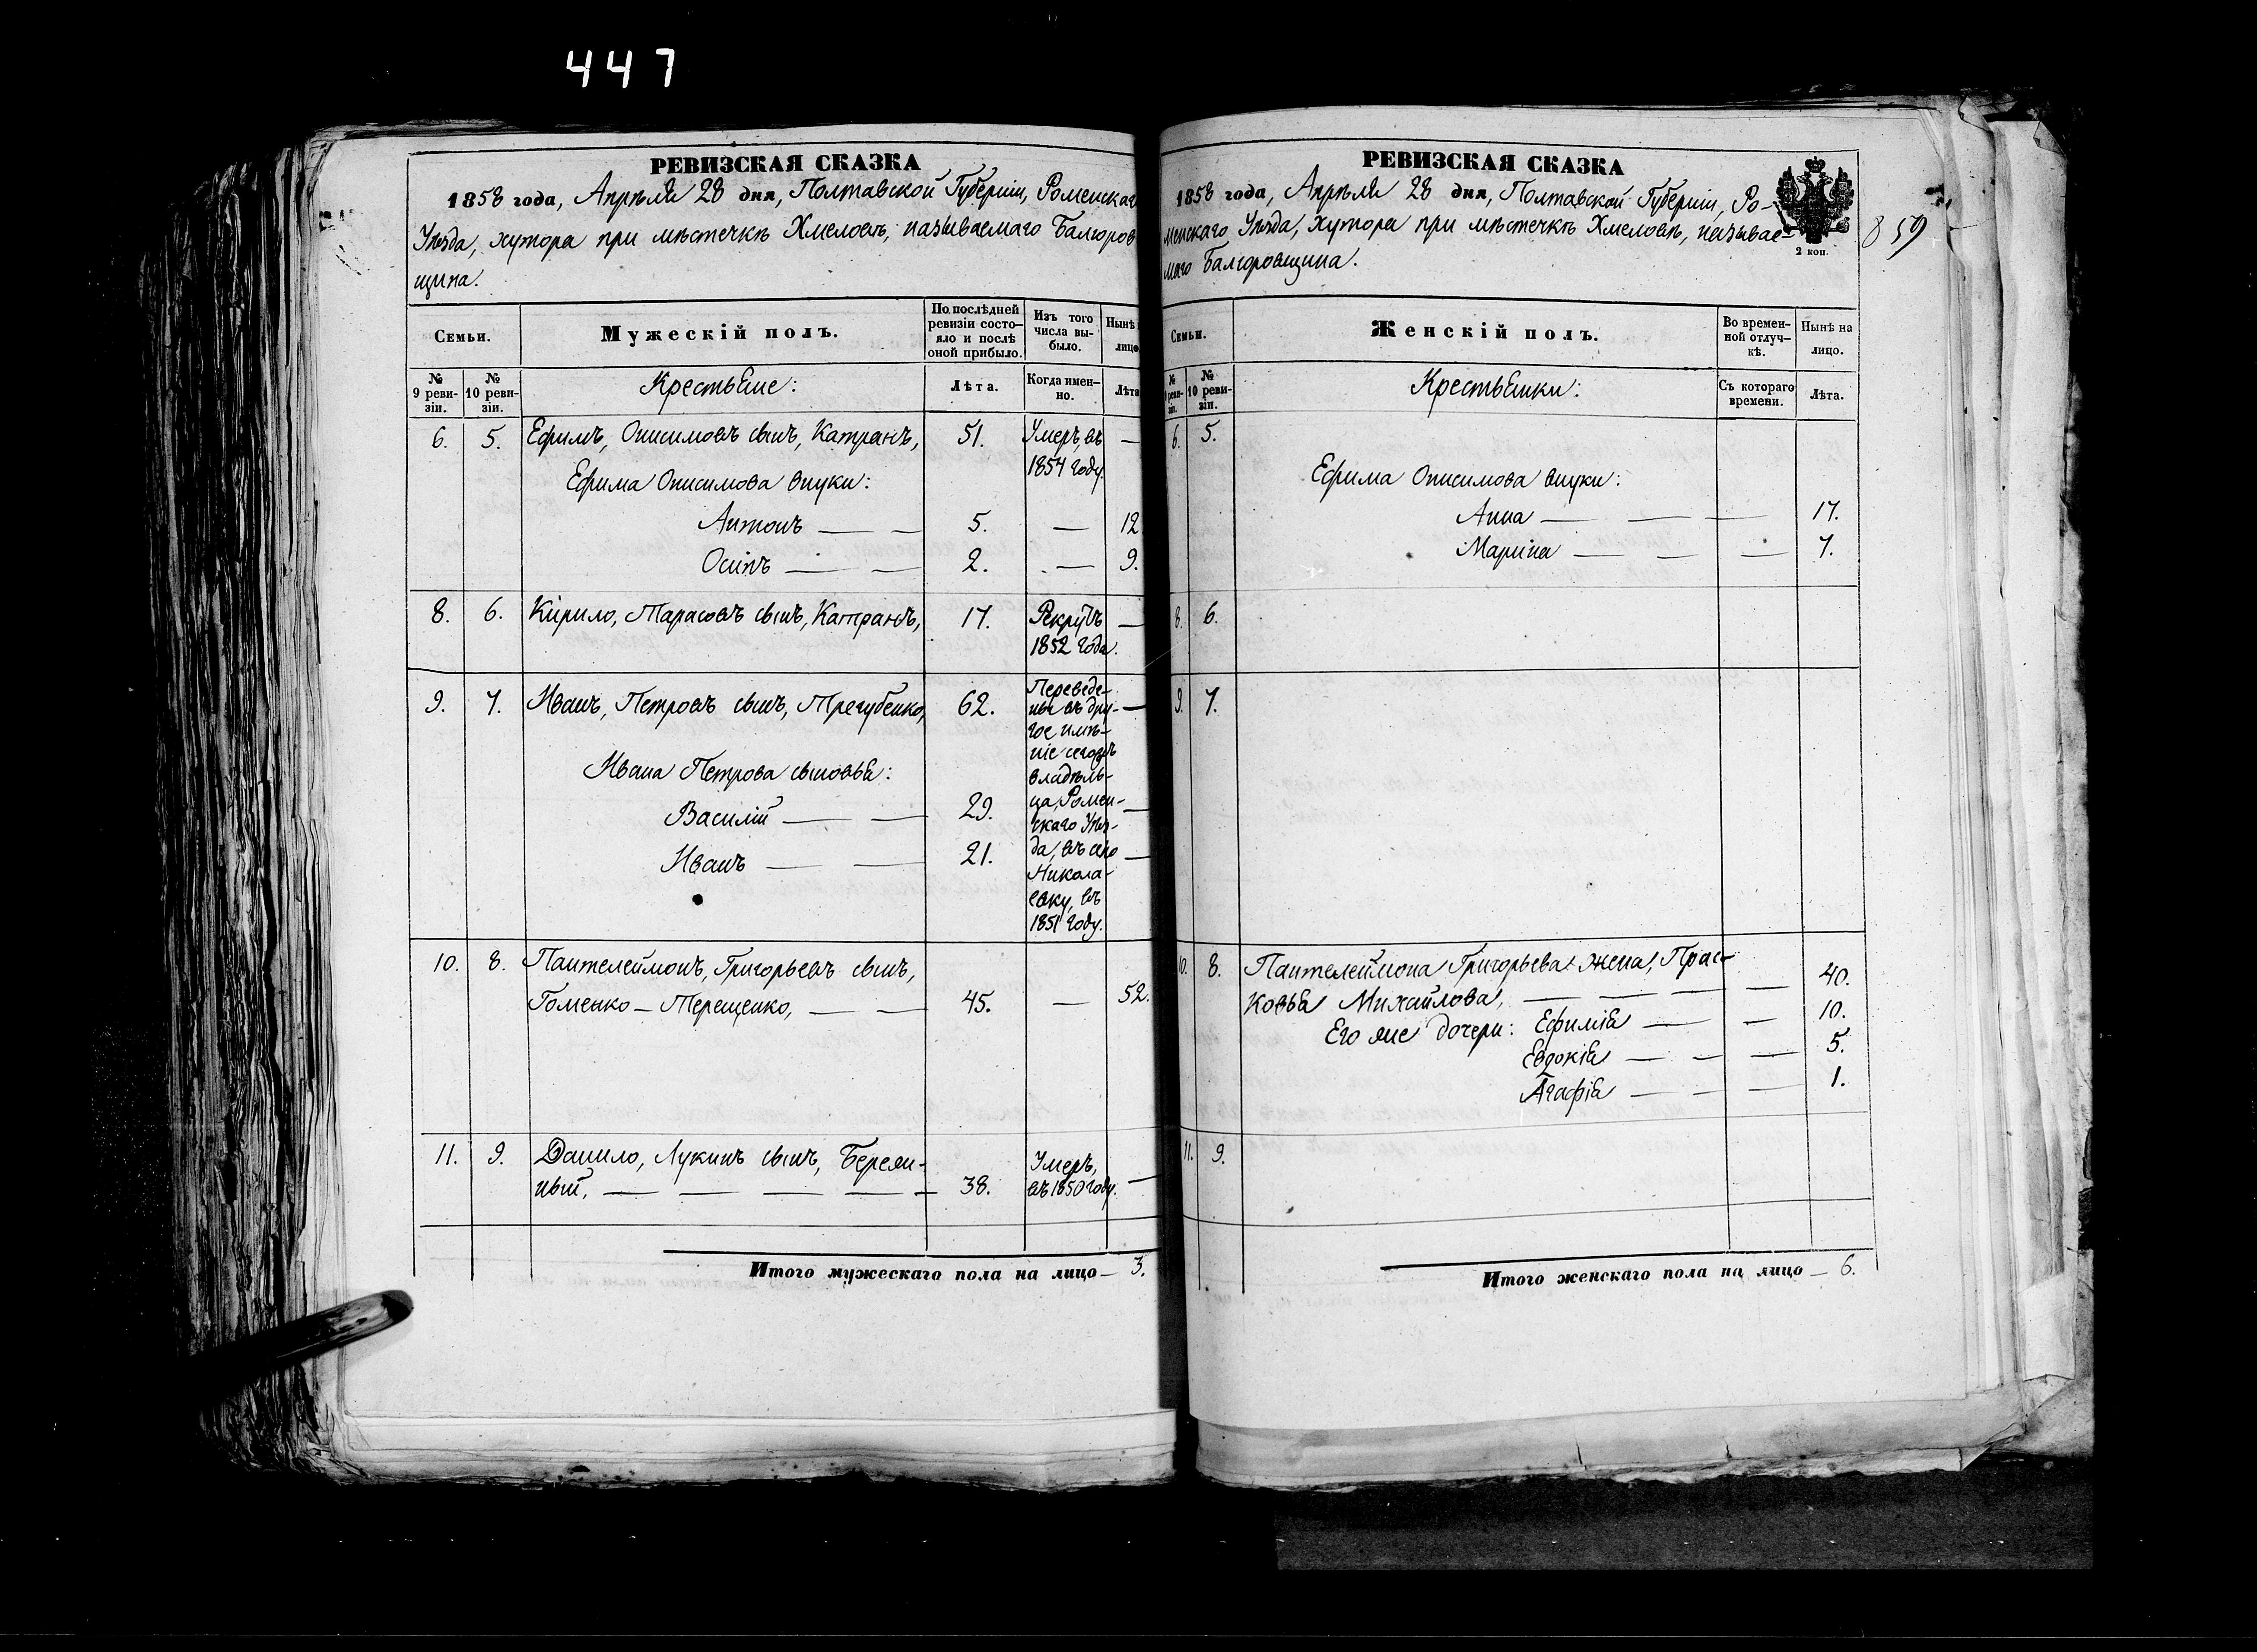 447
РЕВИЗСКАЯ СКАЗКА
1858 года, Апрѣля 28 дня, Полтавской Губерніи, Роменскаго
Уѣзда, хутора при мѣстечкѣ Хмеловѣ, называемаго Балгоров
щина.
Семьи.
Мужескій полъ.
По послѣдней ревизіи состо-
яло и послѣ оной прибыло.
Изъ того числа вы-
было.
Нынѣ
лицо
№ 9 реви-
зіи.
№ 10 реви-
зіи.
Крестьяне:
Лѣта.
Когда имен-
но.
Лѣта
6. 5. Ефимъ, Онисимовъ сынъ, Катранъ, 51. Умеръ, въ —
1854 году.
Ефима Онисимова внуки:
Антонъ — — 5. — 12
Осипъ — — 2. — 9.
8. 6. Кирило, Тарасовъ сынъ, Катранъ, 17. Рекрутъ —
1852 года.
9. 7. Иванъ, Петровъ сынъ, Трегубенко, 62.
Переведе-
ны въ дру-
гое имѣ-
ніе сегожъ
владѣль-
ца, Ромен-
скаго Уѣз-
да, въ село
Никола-
евку, въ
1851 году.
Ивана Петрова сыновья:
Василій — — 29. —
Иванъ — — 21. —
10. 8. Пантелеймонъ, Григорьевъ сынъ,
Гоменко - Терещенко, — — 45. — 52.
11. 9. Данило, Лукинъ сынъ, Бережн-
ный, — — — — — 38. Умеръ,
въ 1850 году. —
Итого мужескаго пола на лицо — 3.
РЕВИЗСКАЯ СКАЗКА
1858 года, Апрѣля 28 дня, Полтавской Губерніи, Ро-
менскаго Уѣзда, хутора при мѣстечкѣ Хмеловѣ, называе-
маго Балгоровщина.
2 коп.
859
Семьи.
Женскій полъ.
Во времен-
ной отлуч-
кѣ.
Нынѣ на
лицо.
№ 9 реви-
зіи.
№ 10 реви-
зіи.
Крестьянки:
Съ котораго
времени.
Лѣта.
6. 5.
Ефима Онисимова внуки:
Анна — — — 17.
Марина — — — 7.
8. 6.
9. 7.
10. 8. Пантелеймона Григорьева жена, Прас-
ковья Михайлова, — — — — 40.
Его же дочери: Ефимія — — 10.
Евдокія — — — 5.
Агафія — — — 1.
11. 9.
Итого женскаго пола на лицо — 6.